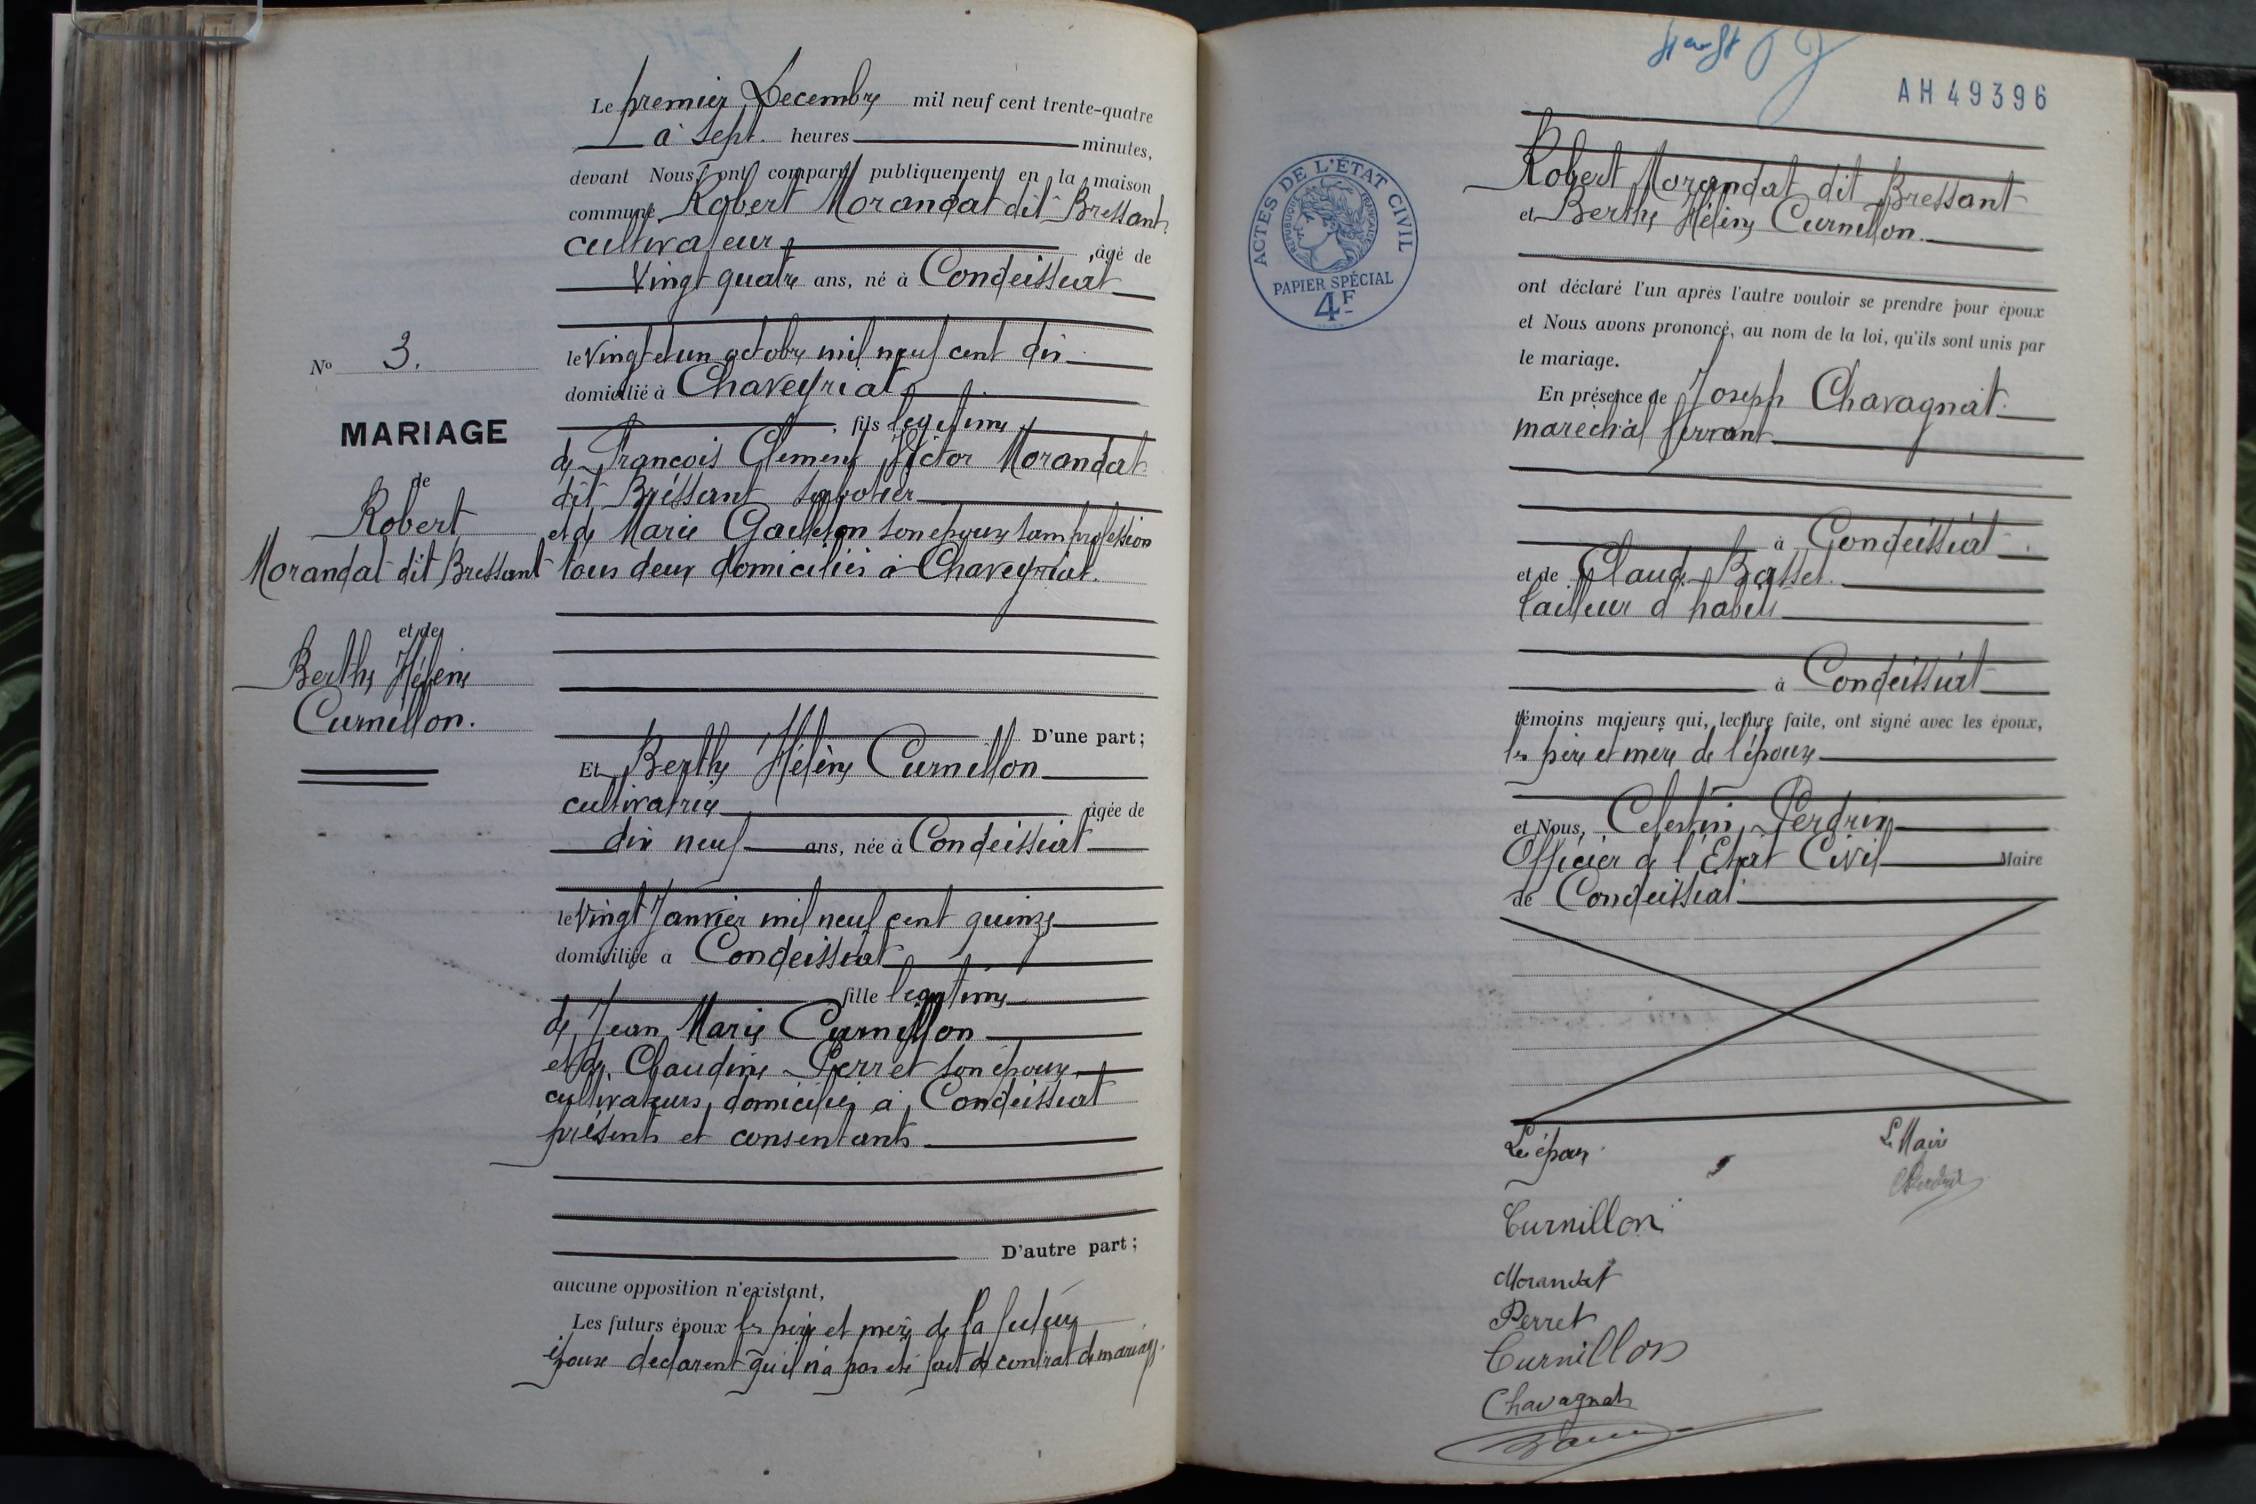 Le premier Decembre mil neuf cent trente-quatre
à sept heures minutes,
devant Nous, ont comparu publiquement en la maison
commune Robert Morandat dit Bressant
cultivateur, âgé de
vingt quatre ans, né à Condeissiat
le vingt et un octobre mil neuf cent dix
domicilié à Chaveyriat
, fils legitime
de François Clement Victor Morandat
dit Bressant sabotier
et de Marie Gauleton son epouse sans profession
tous deux domiciliés à Chaveyriat.
D'une part;
Et Berthe Hélène Curnillon
cultivatrice âgée de
dix neuf ans, née à Condeissiat
le vingt Janvier mil neuf cent quinze
domiciliée à Condeissiat
fille legitime
de Jean Marie Curnillon
et de Claudine Perret son épouse
cultivateurs, domiciliés à Condeissiat
présents et consentants
D'autre part;
aucune opposition n'existant,
Les futurs époux les père et mère de la future
épouse declarent qu'il n'a pas été fait de contrat de mariage.
No 3.
MARIAGE
de
Robert
Morandat dit Bressant
et de
Berthe Hélène
Curnillon.
AH 49396
ACTES DE L'ÉTAT CIVIL
RÉPUBLIQUE FRANÇAISE
PAPIER SPÉCIAL
4F
Robert Morandat dit Bressant
et Berthe Hélène Curnillon
ont déclaré l'un après l'autre vouloir se prendre pour époux
et Nous avons prononcé, au nom de la loi, qu'ils sont unis par
le mariage.
En présence de Joseph Chavagnat
maréchal ferrant
à Condeissiat
et de Claude Basset
tailleur d'habits
à Condeissiat
témoins majeurs qui, lecture faite, ont signé avec les époux,
les père et mère de l'épouse
et Nous, Celestin Perdrix
Officier de l'Etat Civil Maire
de Condeissiat
Les époux
Le Maire
CPerdrix
Curnillon
Morandat
Perret
Curnillon
Chavagnat